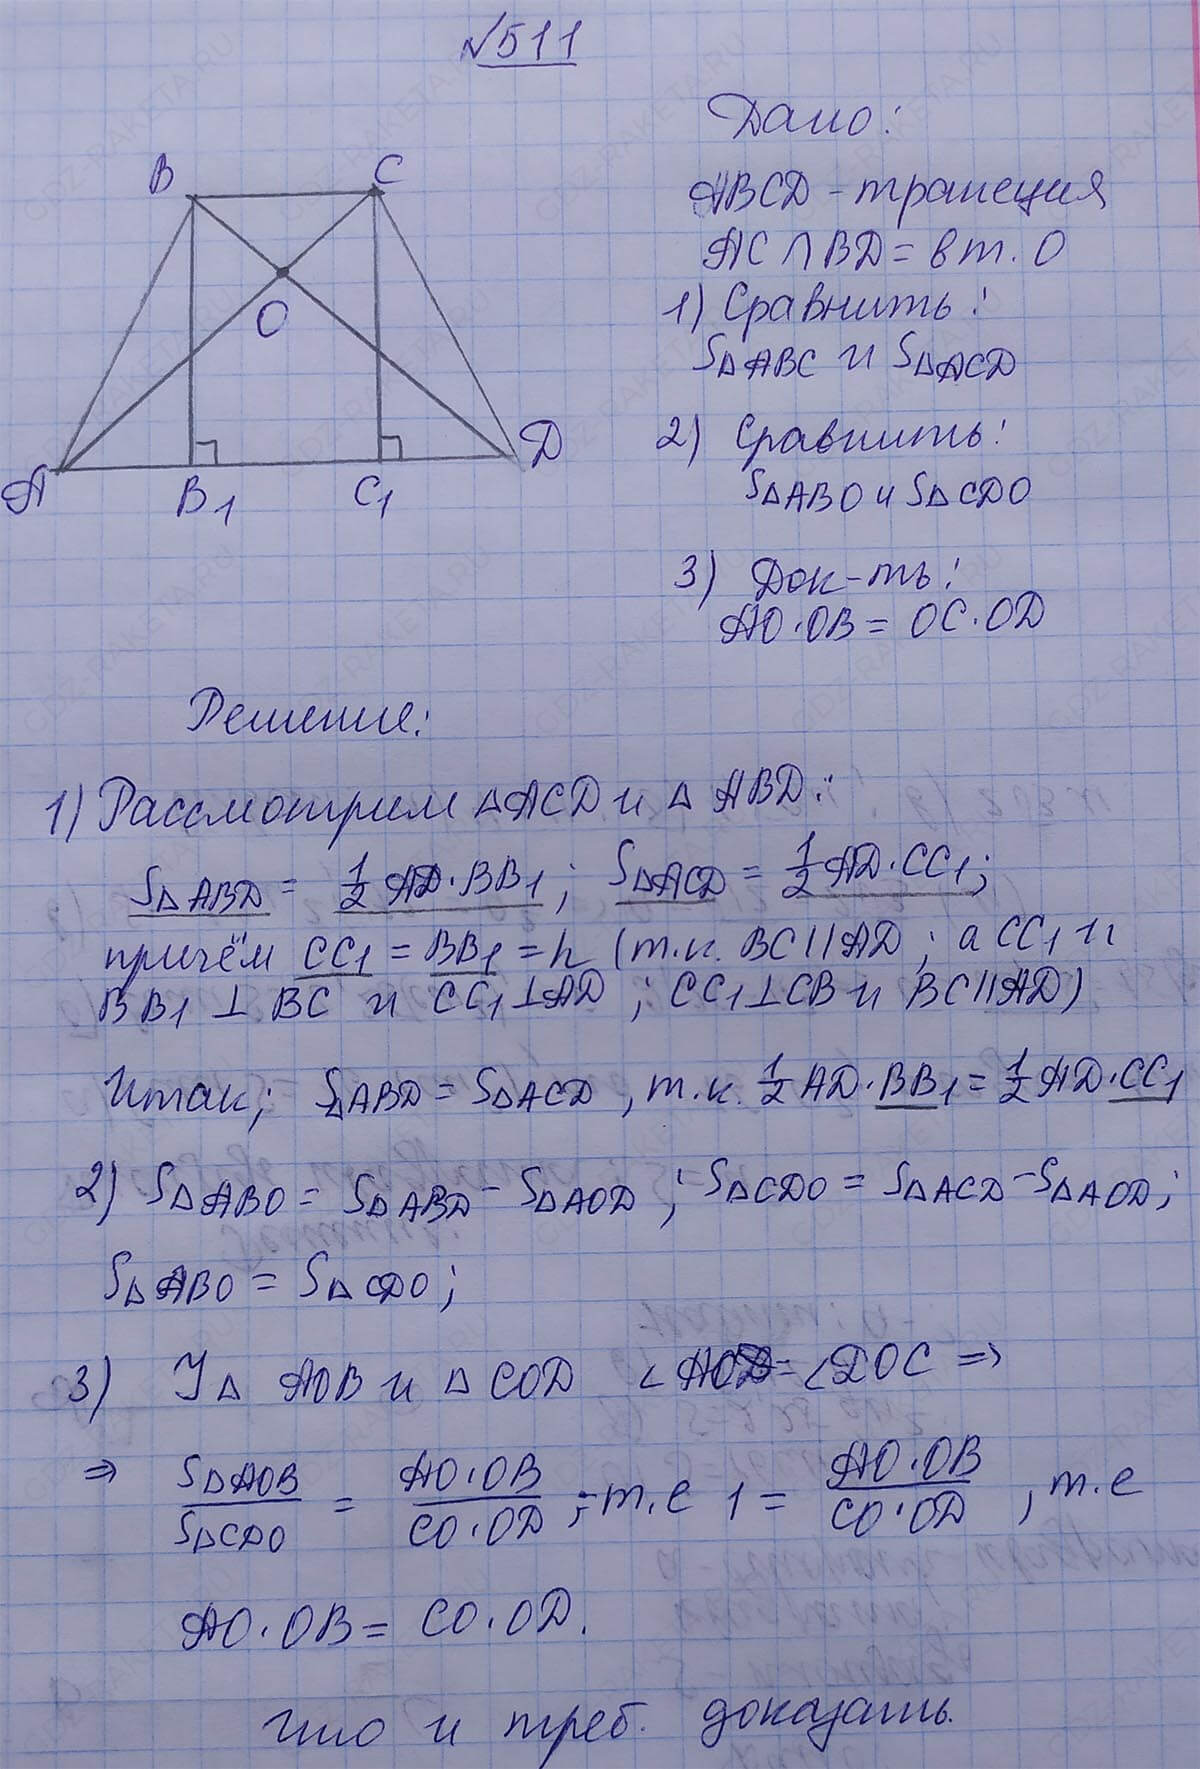 №511
Дано:
B C
ABCD - трапеция
AC ∩ BD = в т. O
O
1) Сравнить:
S△ABC и S△ACD
2) Сравнить:
A B1 C1 D
S△ABO и S△CDO
3) Док-ть:
AO·OB = OC·OD
Решение:
1) Рассмотрим △ACD и △ABD:
S△ABD = 1/2 AD·BB1; S△ACD = 1/2 AD·CC1;
причём CC1 = BB1 = h (т.к. BC||AD; а CC1 и
BB1 ⊥ BC и CC1⊥AD; CC1⊥CB и BC||AD)
Итак; S△ABD = S△ACD, т.к. 1/2 AD·BB1 = 1/2 AD·CC1
2) S△ABO = S△ABD - S△AOD; S△CDO = S△ACD - S△AOD;
S△ABO = S△CDO;
3) У △ AOB и △ COD ∠ = ∠DOC ⇒
⇒ S△AOB/S△CDO = AO·OB/CO·OD; т.е 1 = AO·OB/CO·OD, т.е
AO·OB = CO·OD.
что и треб. доказать.